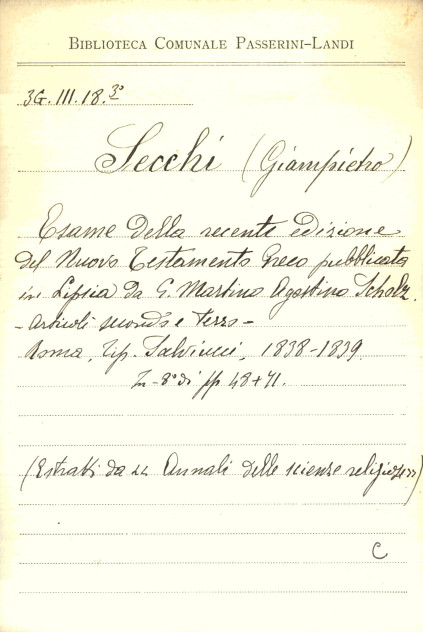 BIBLIOTECA COMUNALE PASSERINI-LANDI
3G. III. 18. 3°
Secchi (Giampietro)
Esame della recente edizione
del Nuovo Testamento Greco pubblicata
in Lipsia da G. Martino Agostino Scholz.
- Articoli secondo e terzo -
Roma, Tip. Salviucci, 1838-1839
In-8° di pp 48+71.
(Estratti da «« Annali delle scienze religiose »»)
C